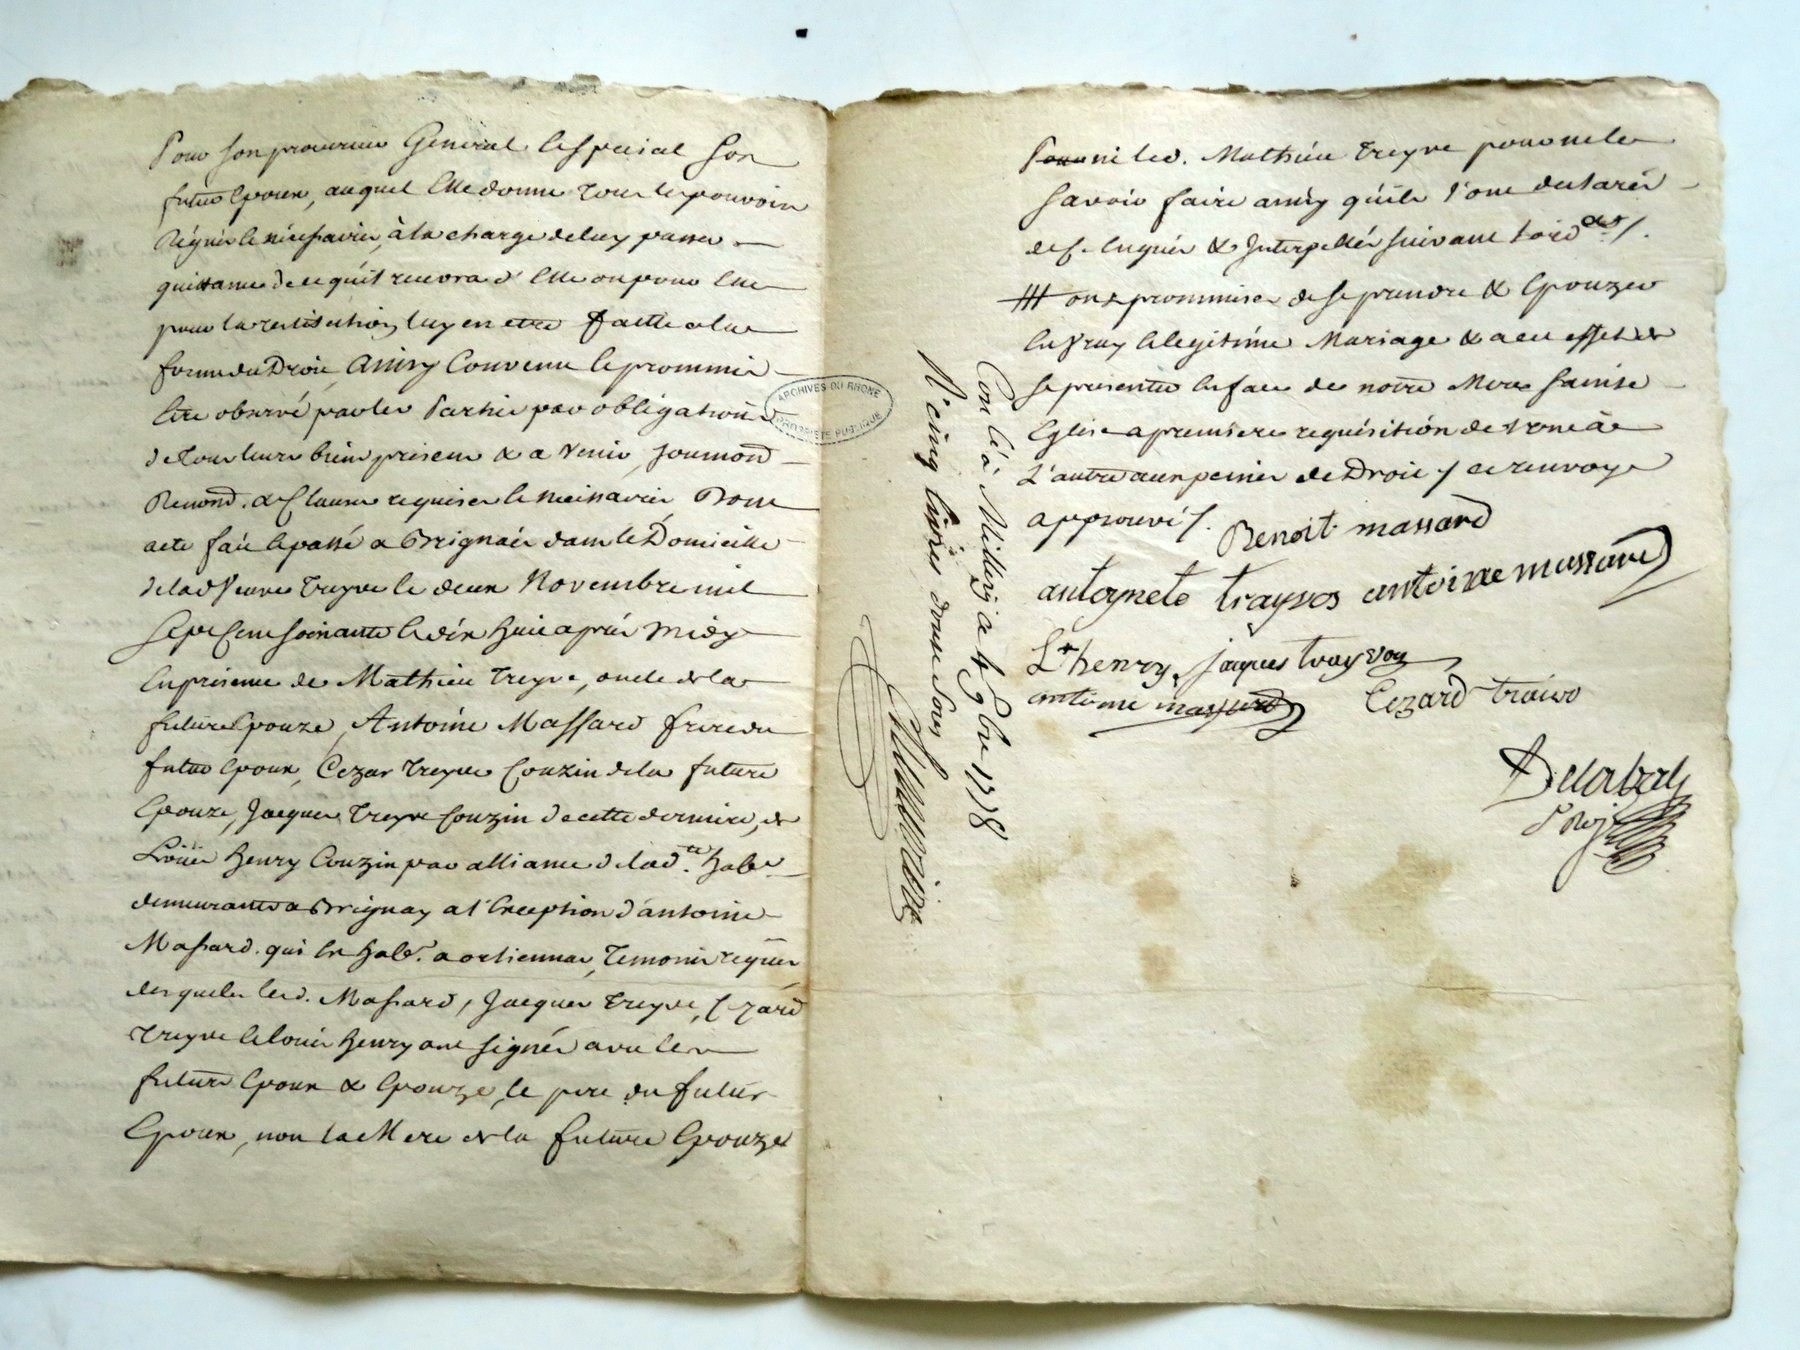 Pour son procureur General & special son
futur Epoux, auquel Elle donne tous les pouvoirs
Réquis & nécéssaires, à la charge de luy passer
quittance de ce qu'il recevra d'Elle ou pour Elle
pour la restitution luy en etre faitte a la
forme du Droit, Ainsy Convenu & prommis
Etre observé par les Parties par obligation
de tous leurs biens présens & a venir, soumond
Renond. & Clauses requises & nécissaires, Dont
acte fait & passé a Brignais dans le Domicille
de lad Veuve Treyve le deux Novembre mil
Sept Cent soixante & dix huit après midy
En présence de Mathieu Treyve, oncle de la
future Epouze, Antoine Massard frere du
futur Epoux, Cezar Treyve Couzin de la future
Epouze, Jacques Treyve Couzin de cette derniere, &
Loüis Henry Couzin par alliance de lad.te hab.
demeurants a Brignay a l'Exception d'antoine
Massard. qui Est hab. a orliennas, Temoins requis
desquels led. Massard, Jacques Treyve, Cezard
Treyve & louis Henry ont signés avec les
futurs Epoux & Epouze, le pere du futur
Epoux, non la Mere de la future Epouze
ni led. Mathieu Treyve pour ne le
savoir faire ainsy qu'ils l'ont declarés
de ce Enquis & Interpellés suivant l'ord.ce /.
ont prommises de se prendre & Epouzer
En Vray & legitime Mariage & a cet effet de
se présenter En face de notre Mere Sainte
Eglise a premiere requisition de l'une à
L'autre aux peines de Droit / ce renvoye
approuvé /.
Benoit massard
antoynete trayvos antoine massard
Ls henry jaques trayvou
antoine massard Cezard traivo
Delorbroly
Con lé à Millery a 4 9bre 1778
R cinq livres douze sous
ARCHIVES DU RHONE
PROPRIETE PUBLIQUE